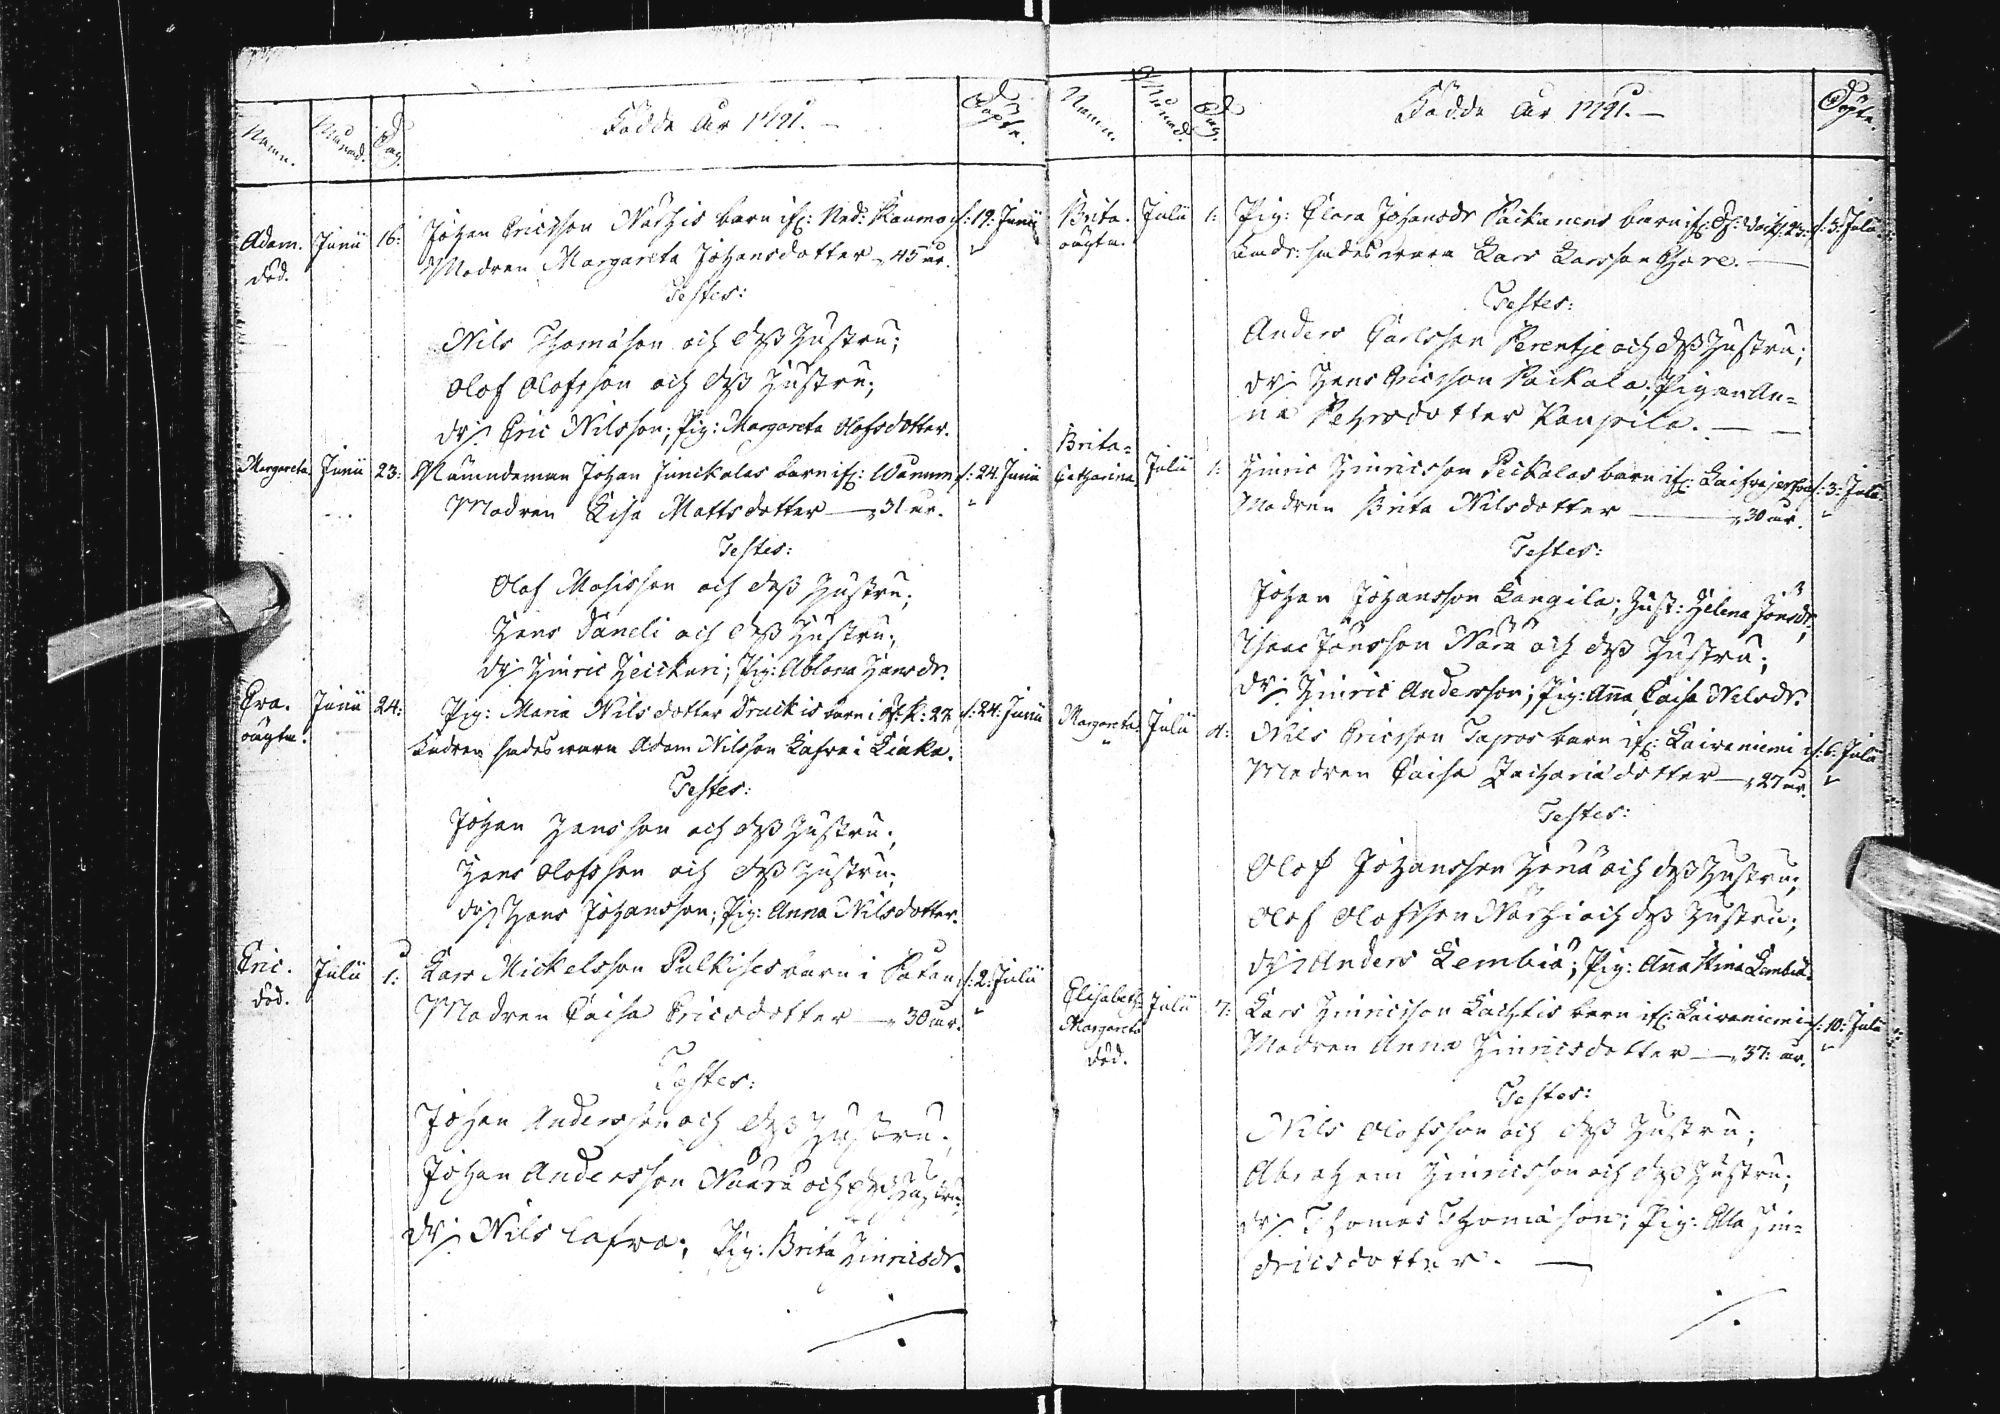 Namn. Månad. Dag. Födde År 1791. Döpte.
Adam. Junii 16: Johan Ericsson Närhis barn if: Ned: Raumo d: 19: Junii
död. Modren Margareta Johansdotter 45 år.
Testes:
Nils Thomasson och deß Hustru;
Olof Olofsson och deß Hustru;
Dr: Eric Nilsson; Pig: Margareta Olofsdotter.
Margareta. Junii 23: Nämndeman Johan Junckalas barn if: d: 24 Junii
Modren Lisa Mattsdotter 31 år.
Testes:
Olof Mosisson och deß Hustru;
Hans Daneli och deß Hustru;
Dr: Hinric Heickuri; Pig: Ablona Hansdr.
Eva. Junii 24: Pig: Maria Nilsdotter barn i d: 24: Junii
oägta. Adam Nilsson Lafra i Liaka.
Testes:
Johan Hansson och deß Hustru;
Hans Olofsson och deß Hustru;
Dr: Hans Johansson; Pig: Anna Nilsdotter.
Eric. Julii 1: Lars Mickelsson Pulkises barn i d: 2: Julii
död. Modren Caisa Ericsdotter 30 år.
Testes:
Johan Andersson och deß Hustru;
Johan Andersson Näärä och deß Hustru;
Dr: Nils Lafra; Pig: Brita Hinricsdr.
Namn. Månad. Dag. Födde År 1791. Döpte.
Brita. Julii 1: Pig: Clara Johansdr barn if: 23: d: 3: Julii
oägta. Lars Larsson
Testes:
Anders Carlsson Perentje och deß Hustru;
Dr: Hans Ericsson Räikälä; Pigan An=
na Pehrsdotter Kaupila.
Brita=
Catharina Julii 1: Hinric Hinricsson Peckalas barn if: d: 3: Julii
Modren Brita Nilsdotter 30 år.
Testes:
Johan Johansson Kangila; Hust: Helena Jönsdr;
Isaac Jönsson Närä och deß Hustru;
Dr: Hinric Andersson; Pig: Anna Caisa Nilsdr.
Margareta. Julii 4: Nils Ericsson Tapos barn if: Laivaniemi d: 6: Julii
Modren Caisa Zachariædotter 27 år.
Testes:
Olof Johansson och deß Hustru;
Olof Olofsson Närhi och deß Hustru;
Dr: Anders Lembiä; Pig: Anna Stina Lembiä.
Elisabeth= Julii 7: Lars Hinricsson Lachtis barn if: Laivaniemi d: 10: Julii
Margareta Modren Anna Hinricsdotter 37: år.
död.
Testes:
Nils Olofsson och deß Hustru;
Abraham Hinricsson och deß Hustru;
Dr: Thomas Thomasson; Pig: Ella Hin=
dricsdotter.